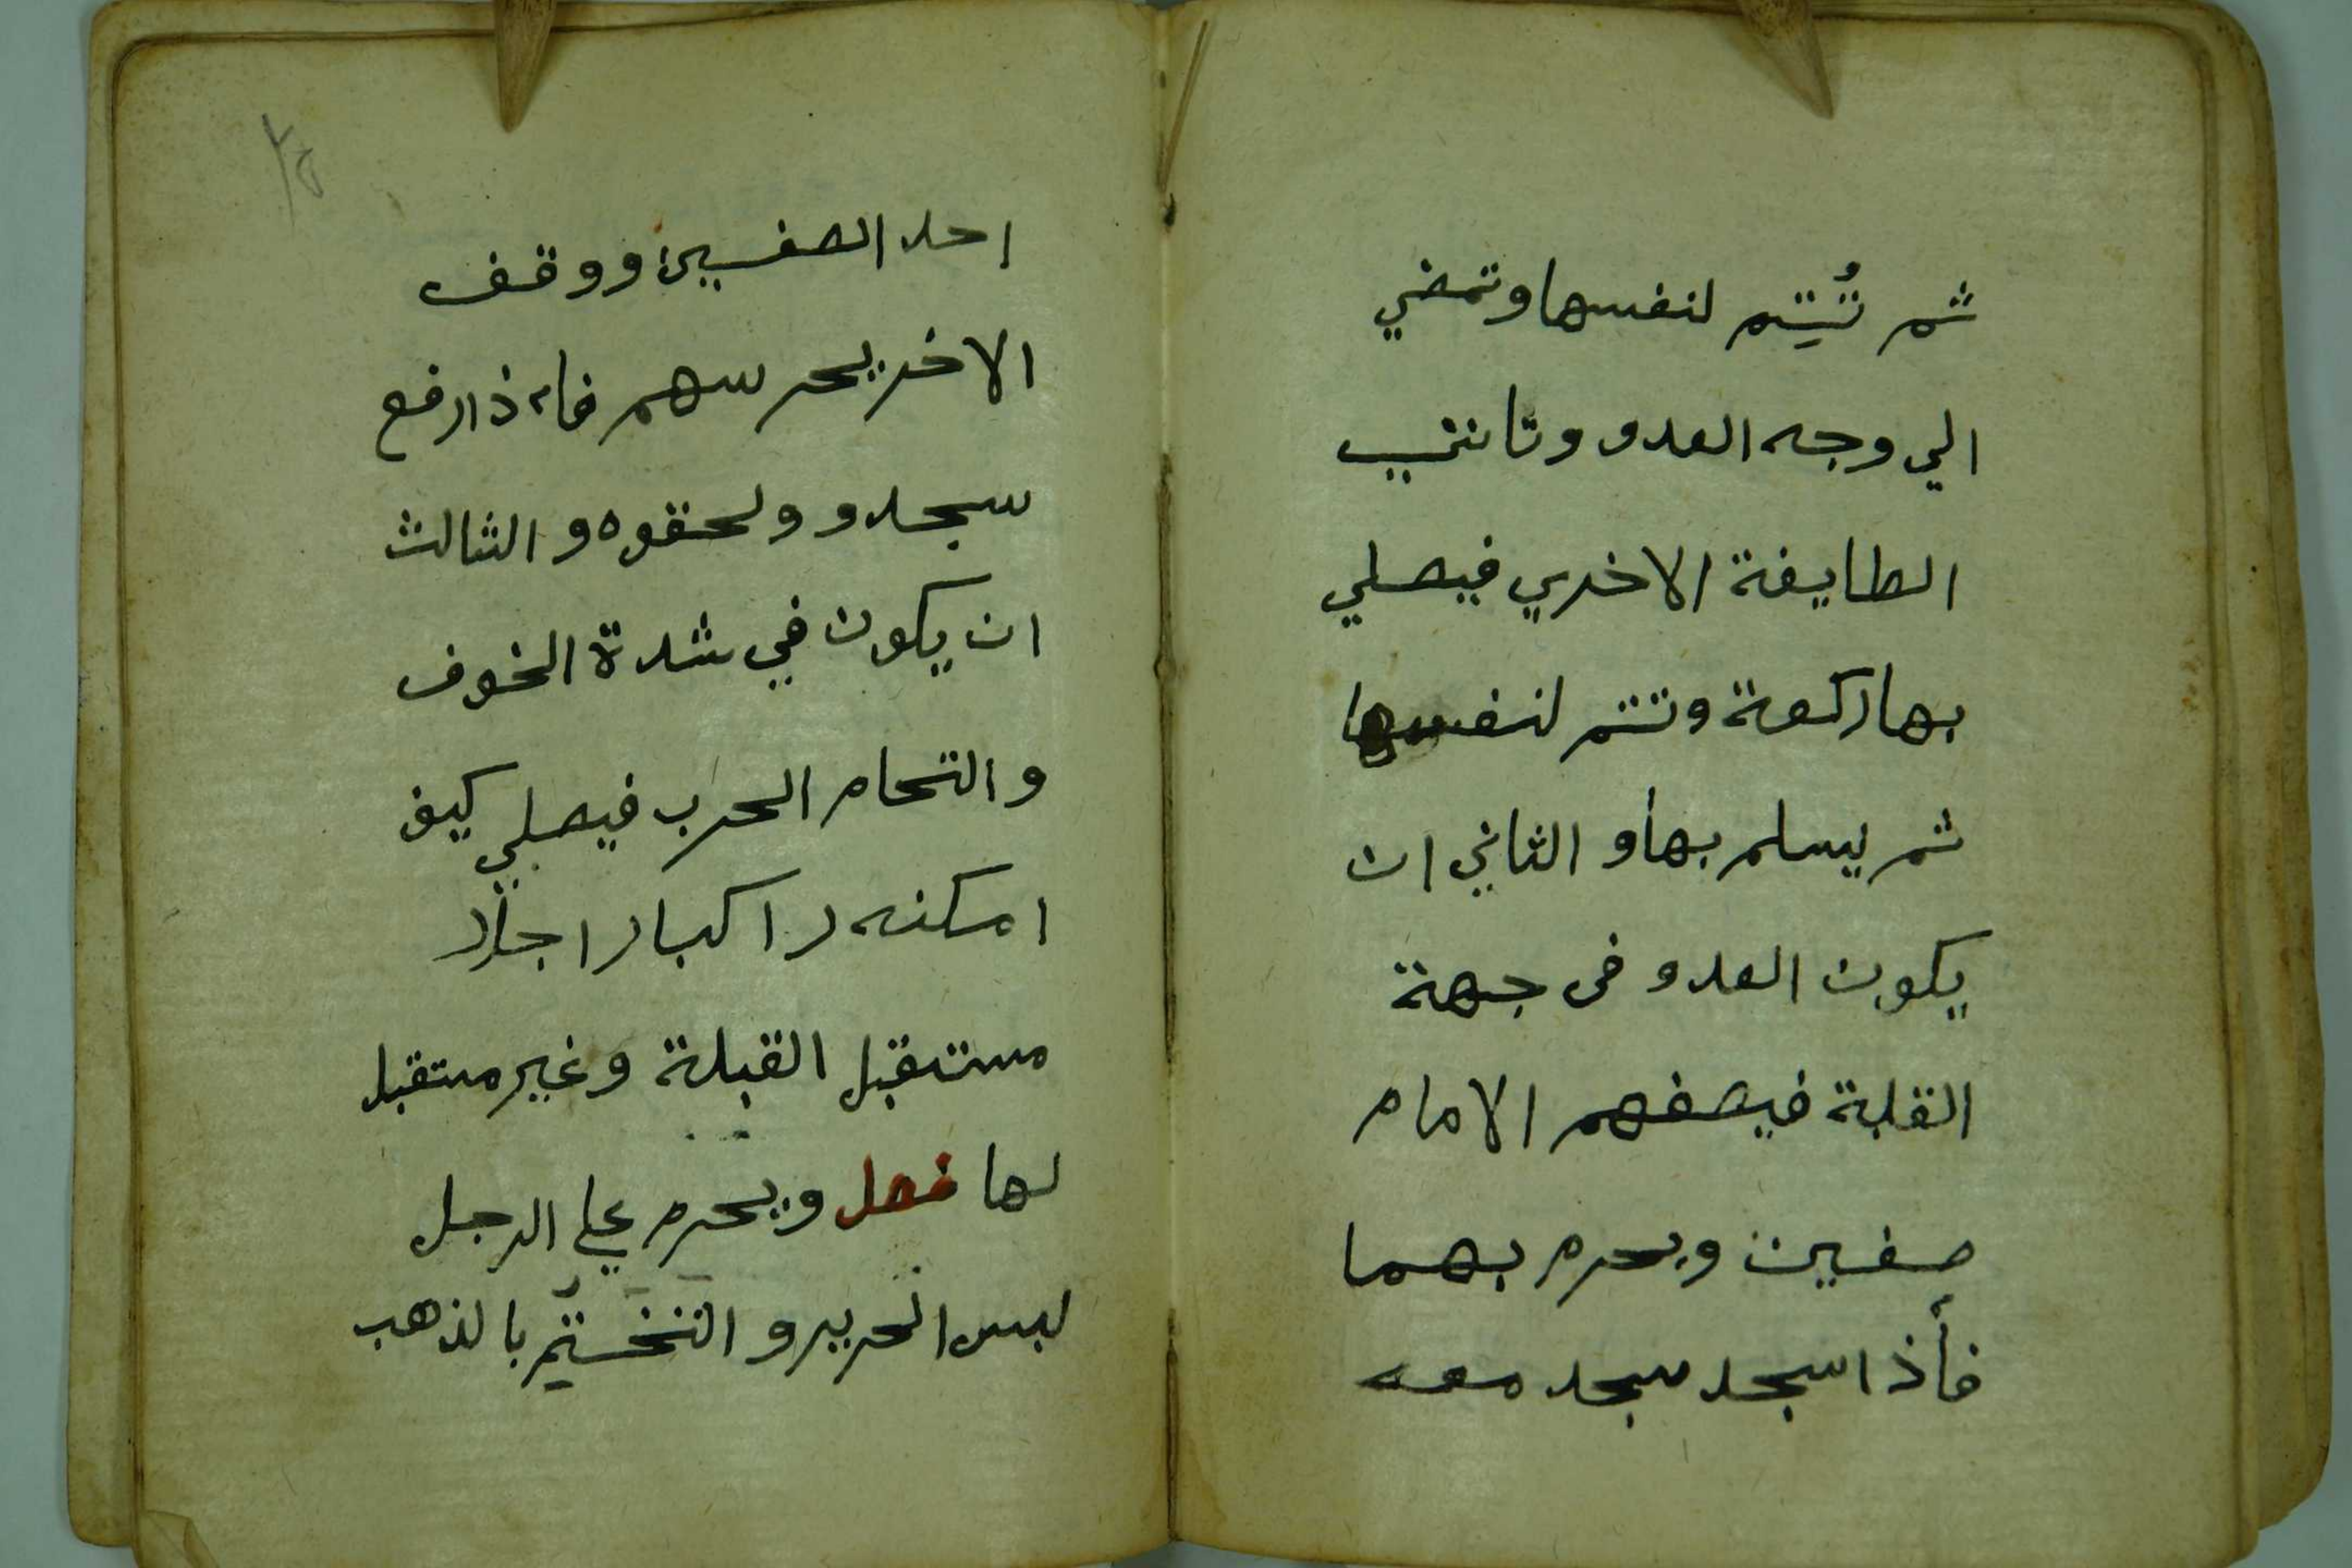 ثم تُتِم لنفسها وتمضي
الي وجه العدو وتاتي
الطايفة الاخري فيصلي
بها ركعة وتتم لنفسها
ثم يسلم بها و الثاني ان
يكون العدو فى جهة
القلبة فيصفهم الامام
صفين ويحرم بهما
فأذا سجد سجد معه
٢٥
احد الصفين ووقف
الاخر يحرسهم فاذا رفع
سجدو ولحقوه و الثالث
ان يكون في شدة الخوف
والتحام الحرب فيصلي كيف
امكنه راكبا راجلا
مستقبل القبلة وغير مستقبل
لها فصل ويحرم علي الرجل
لبس الحرير و التختم بالذهب